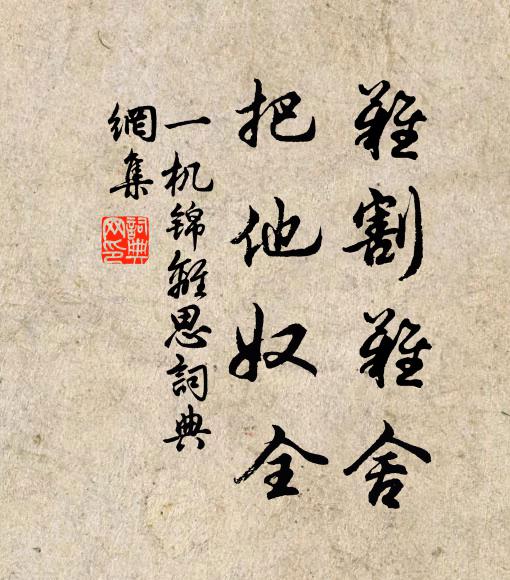 難割難舍
把他奴全
一机錦離思詞典
網集
詞典
网印